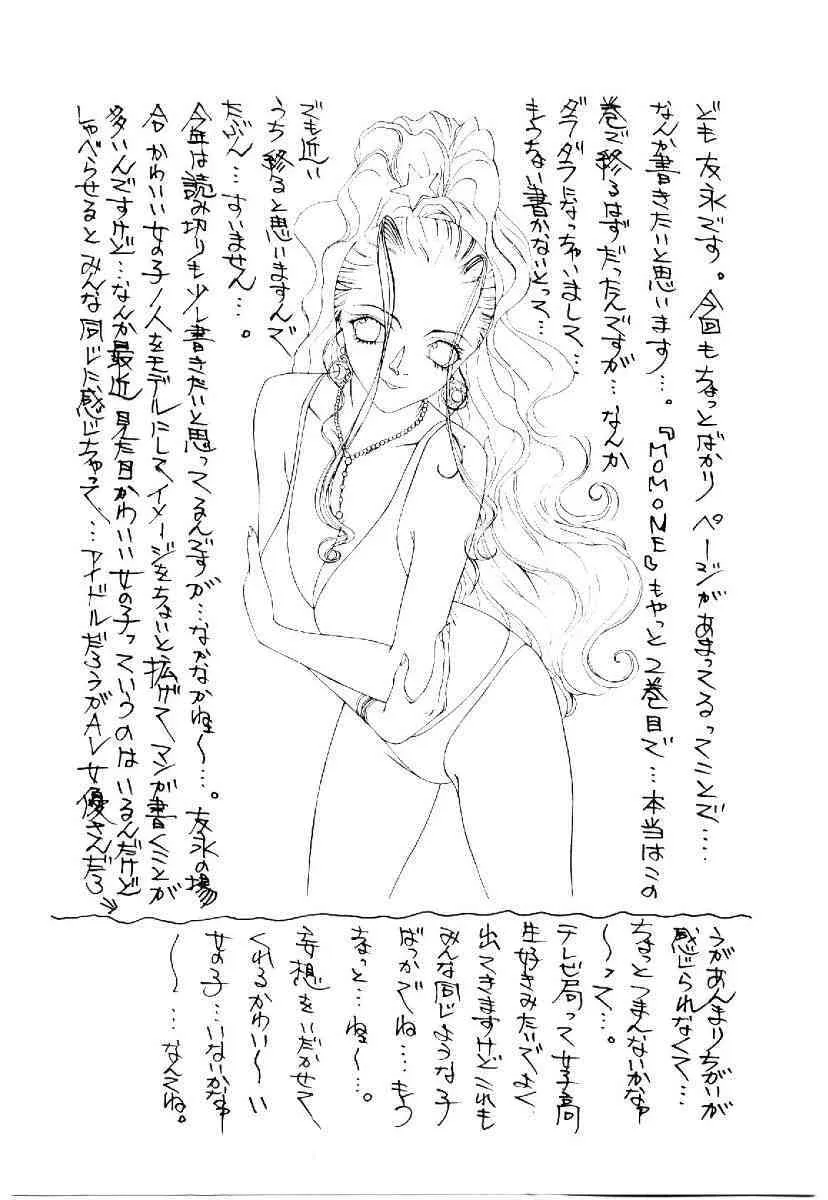 ども友永です。今回もちょっとばかりページがあまってるってことで……
なんか書きたいと思います…。『MOMONE』もやっと2巻目で…本当はこの
巻で終るはずだったんですが…なんか
ダラダラになっちゃいまして…
もうちょい書かないとって…
でも近い
うち終ると思いますんで
たぶん…すいません…。
今年は読み切りも少し書きたいと思ってるんですが…なかなかね〜…。友永の場
合かわいい女の子1人をモデルにしてイメージをちょいと拡げてマンガ書くことが
多いんですけど…なんか最近見た目かわいい女の子っていうのはいるんだけど
しゃべらせるとみんな同じに感じちゃって…アイドルだろうがAV女優さんだろ
うがあんまりちがいが
感じられなくて…
ちょっとつまんないかなゃ
〜って…。
テレビ局って女子高
生好きみたいでよく
出てきますけどこれも
みんな同じような子
ばっかでね…もう
ちょっと…ね〜…。
妄想をいだかせて
くれるかわい〜い
女の子…いないかなゃ
〜〜…なんてね。